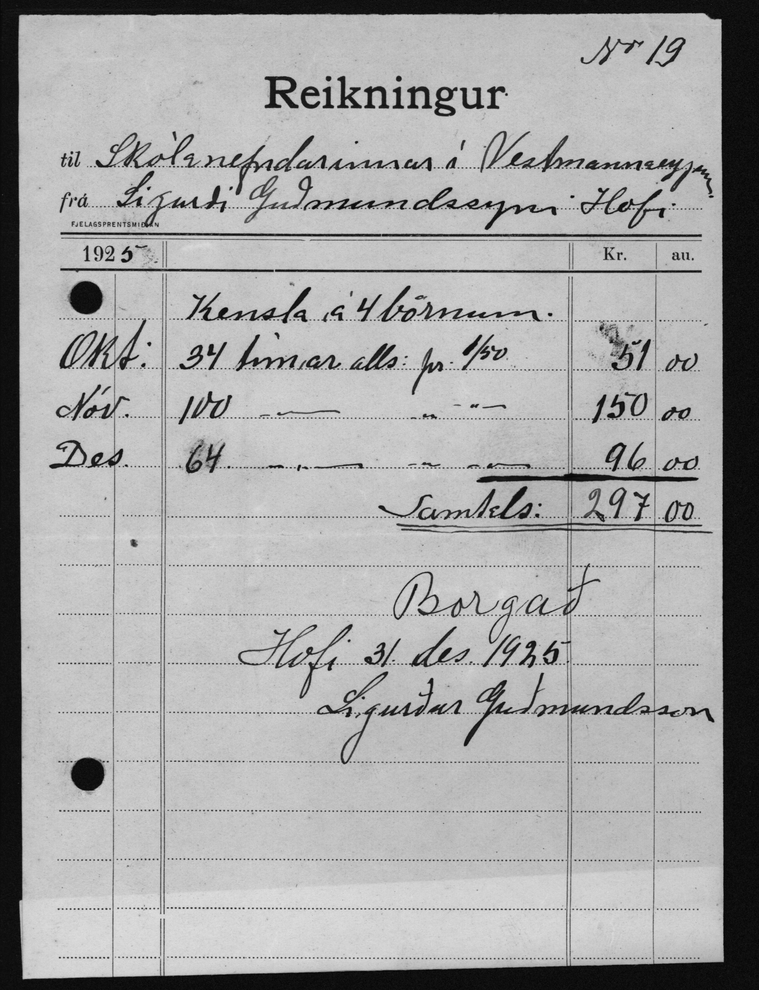 No 19
Reikningur
til Skólanefndarinnar í Vestmannaeyjum.
frá Sigurði Guðmundssyni Hofi
FJELAGSPRENTSMIÐJAN
1925 Kr. au.
Kensla á 4 börnum.
Okt: 34 tímar alls: pr. 1/50 51 00
Nóv. 100 —„— „ „ 150 00
Des. 64 —„— „ „ 96 00
Samtals: 297 00
Borgað
Hofi 31. des. 1925
Sigurður Guðmundsson